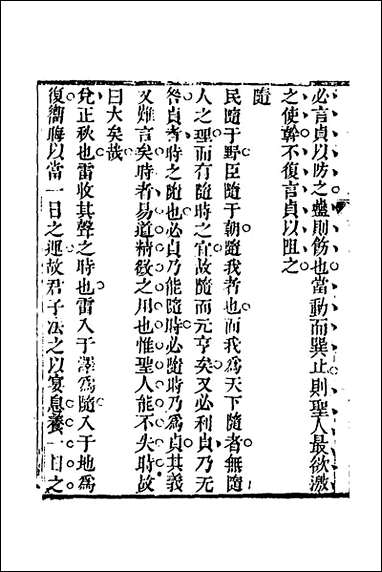 必言貞以防之蠱則飭也當動而巽止則聖人最欲激
之使幹不復言貞以阻之
隨
民隨于野臣隨于朝隨我者也而我爲天下隨者無隨
人之理而有隨時之宜故隨而元亨矣又必利貞乃无
咎貞者時之隨也必貞乃能隨時必隨時乃爲貞其義
又難言矣時者易道精微之用也惟聖人能不失時故
曰大矣哉
兌正秋也雷收其聲之時也雷入于澤爲隨入于地爲
復嚮晦以當一日之運故君子法之以宴息養一日之